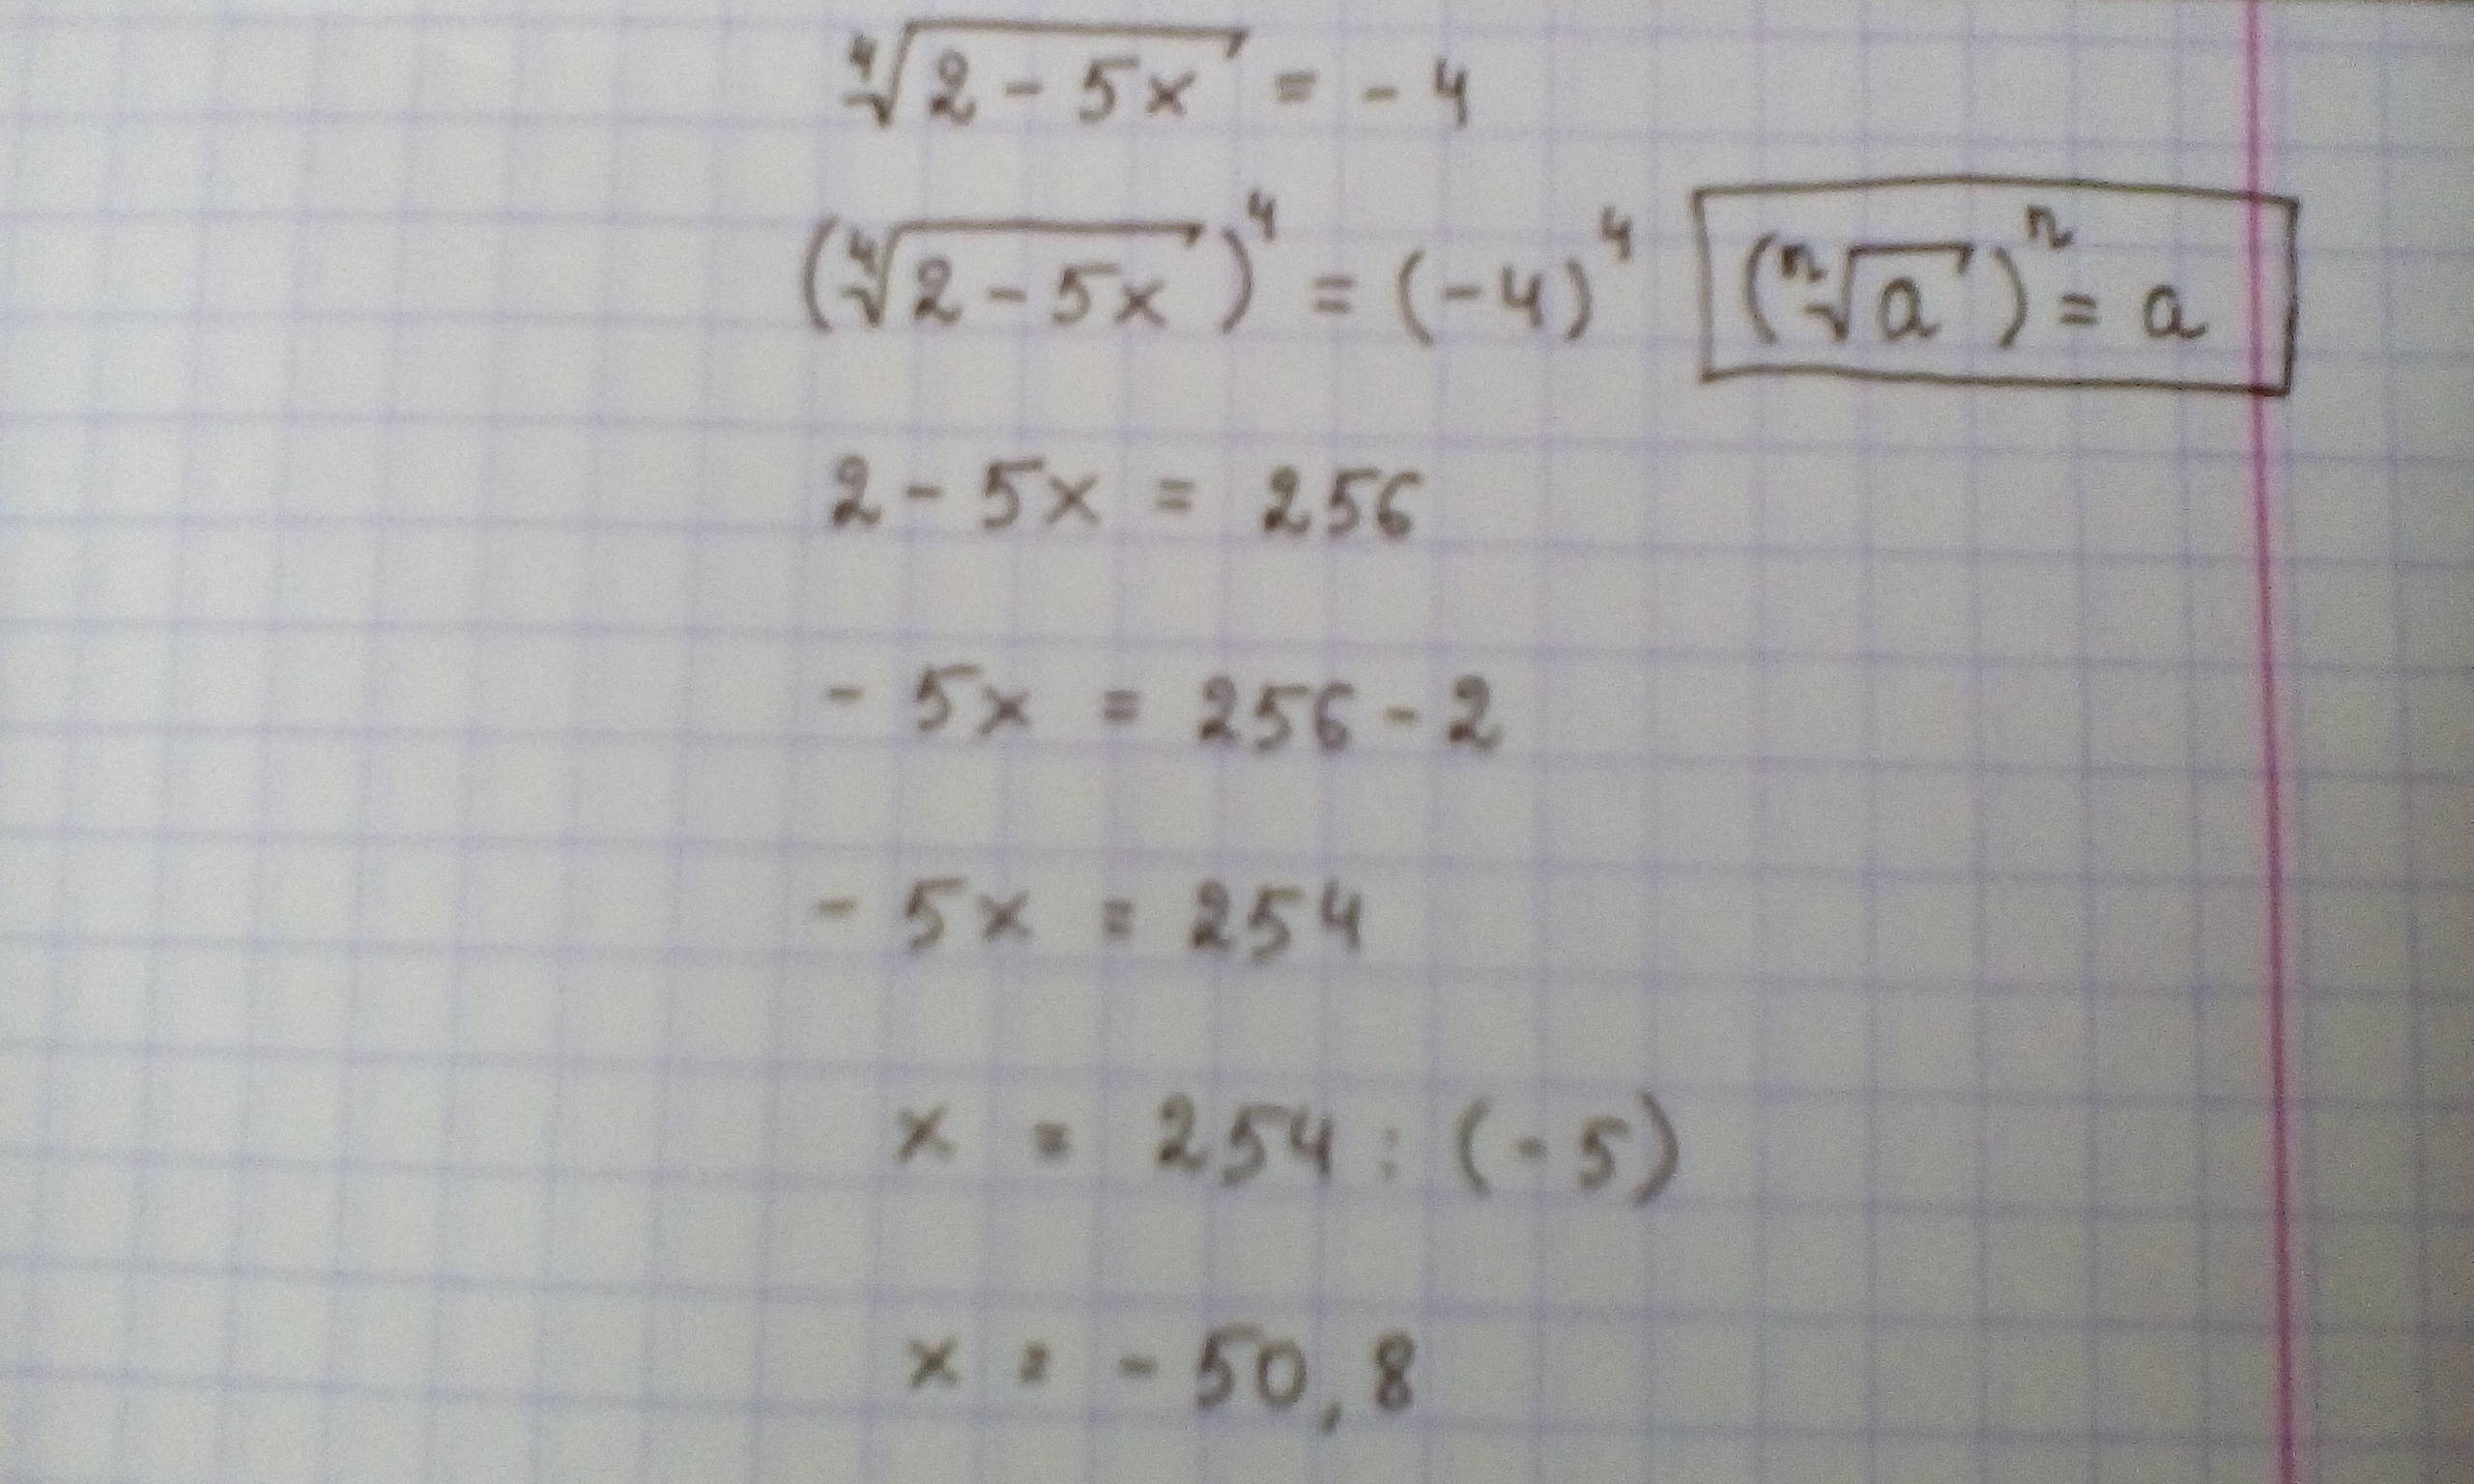 ⁴√(2 - 5x) = - 4
(⁴√(2 - 5x))⁴ = (-4)⁴ (ⁿ√a)ⁿ = a
2 - 5x = 256
- 5x = 256 - 2
- 5x = 254
x = 254 : (-5)
x = - 50,8